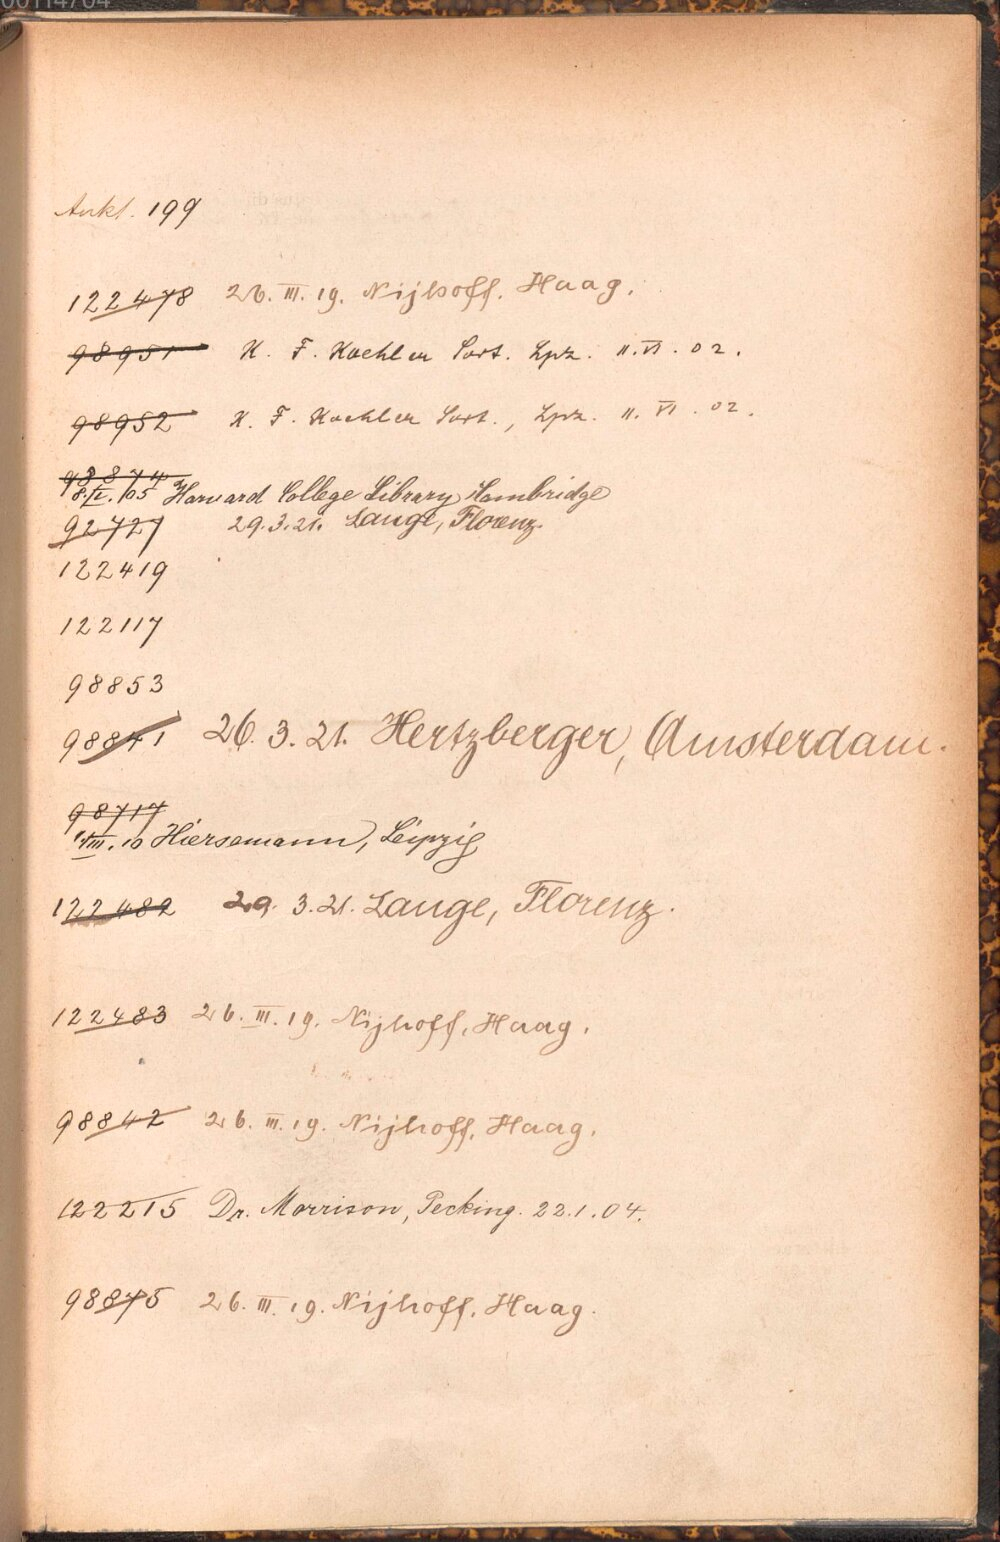 00114704
Aukt. 199
122478 26. III. 19. Nijhoff, Haag.
98951 K. F. Koehler Sort. Lpz. 11. VI. 02.
98952 K. F. Koehler Sort., Lpz. 11. VI. 02.
98874
8. IX. 05 Harvard College Library, Hambridge
92727 29.3.21. Lange, Florenz.
122419
122117
98853
98841 26. 3. 21. Hertzberger, Amsterdam.
98717
VIII. 10 Hiersemann, Leipzig
122482 29. 3. 21. Lange, Florenz.
122483 26. III. 19. Nijhoff, Haag.
98842 26. III. 19. Nijhoff, Haag.
122215 Dr. Morrison, Pecking. 22.1.04.
98875 26. III. 19. Nijhoff, Haag.